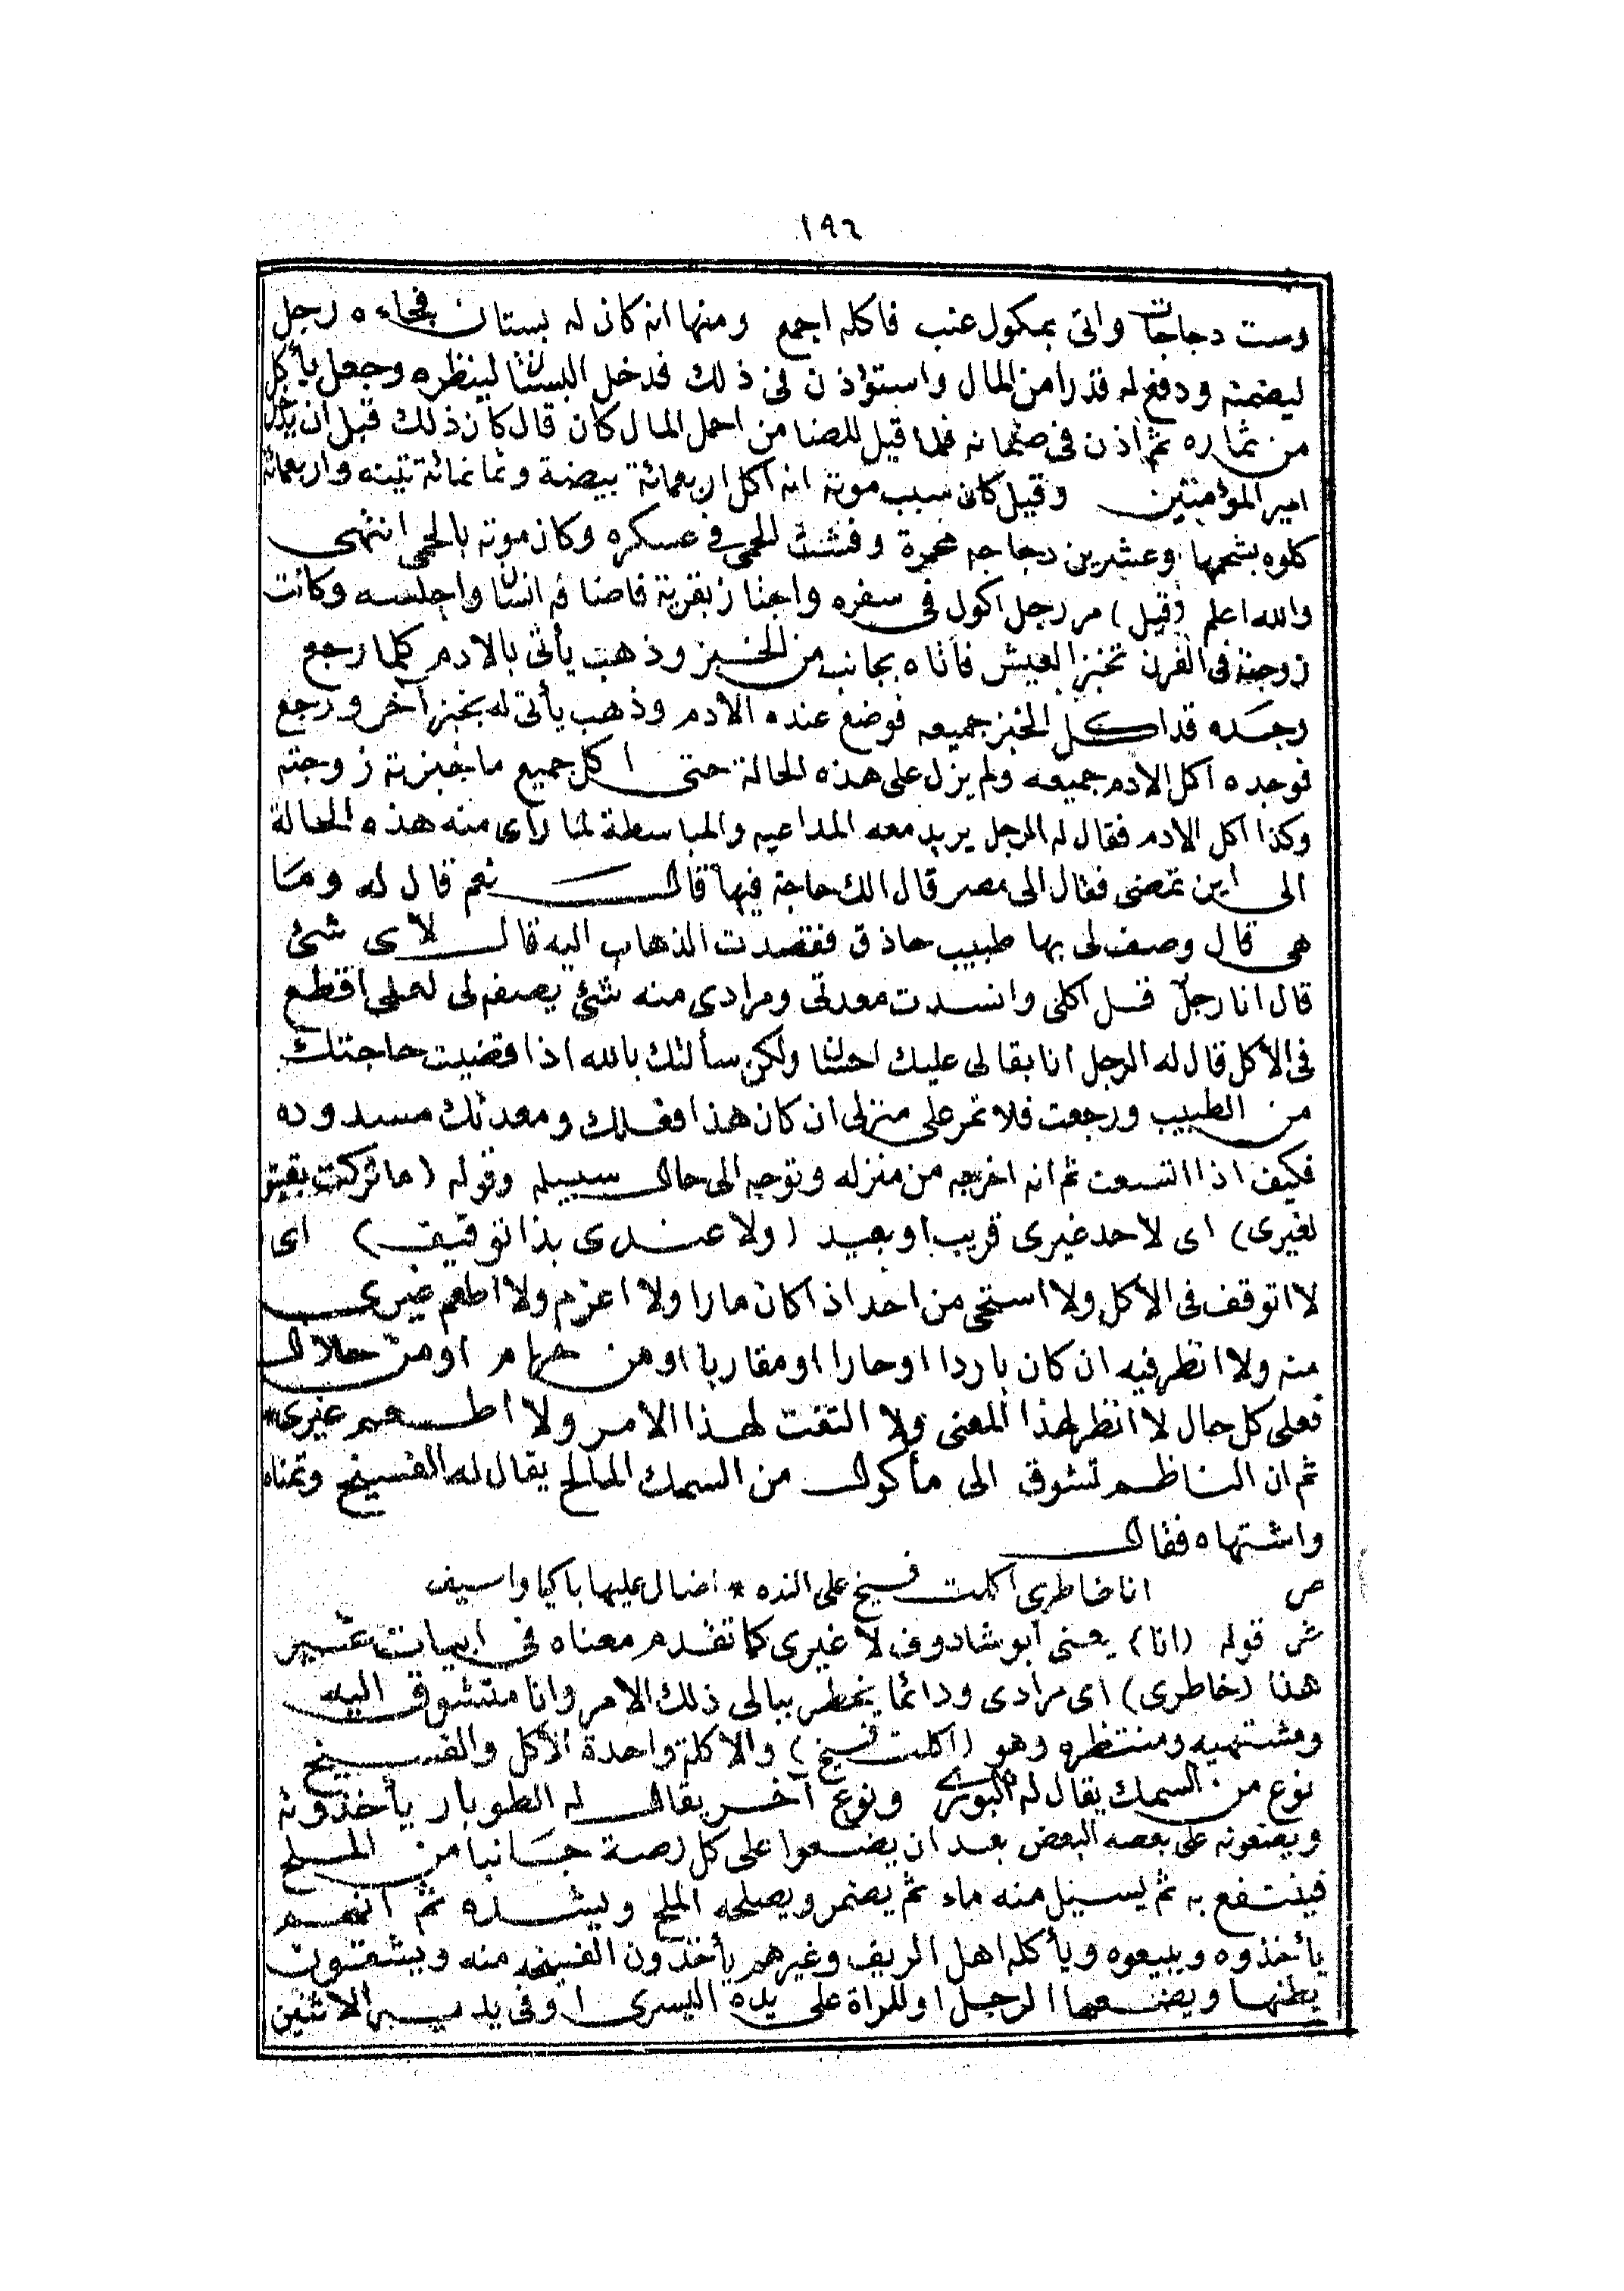 ١٩٦
وست دجاجات واتى بمكول عنب فاكله اجمع ومنها انه كان له بستان فجاءه رجل
ليضمنه ودفع له قدرا من المال واستؤذن فى ذلك فدخل البستان لينظره وجعل يأكل
من ثماره ثم اذن فى ضمانه فلما قيل للضا من احمل المال كان قال كان ذلك قبل ان يدخل
امير المؤمنين وقيل كان سبب موته انه اكل اربعمائة بيضة وثمانمائة تينه واربعمائة
كلوه بشحمها وعشرين دجاجه محمرة وفشت الحمى فى عسكره وكان موته بالحمى انتهى
والله اعلم (قيل) مر رجل اكول فى سفره واجتاز بقرية فاضافه انسان واجلسه وكانت
زوجته فى الفرن تخبز العيش فاتاه بجانب من الخبز وذهب يأتى بالادم كلما رجع
وجده قد اكل الخبز جميعه فوضع عنده الادم وذهب يأتى له بخبز آخر ورجع
فوجده اكل الادم جميعه ولم يزل على هذه الحالة حتى اكل جميع ما خبزته زوجته
وكذا اكل الادم فقال له الرجل يريد معه المداعبه والمباسطة لما رأى منه هذه الحالة
الى اين تمضى فقال الى مصر قال الك حاجة فيها قال نعم قال له وما
هى قال وصف لى بها طبيب حاذق فقصدت الذهاب اليه قال لاى شئ
قال انا رجل قل اكلى وانسدت معدتى ومرادى منه شئ يصفه لى لعلى اقطع
فى الأكل قال له الرجل انا بقا لى عليك احسان ولكن سألتك بالله اذا قضيت حاجتك
من الطبيب ورجعت فلا تمر على منزلى ان كان هذا فعلك ومعدتك مسدوده
فكيف اذا اتسعت ثم انه اخرجه من منزله وتوجه الى حال سبيله وقوله (ما تركت بقيتو
لغيرى) اى لاحد غيرى قريب او بعيد (ولا عندى بذا توقيف) اى
لا اتوقف فى الأكل ولا استحى من احد اذا كان مارا ولا اعزم ولا اطعم غيرى
منه ولا انظر فيه ان كان باردا او حارا او مقاربا او من حرام او من حلال
فعلى كل حال لا انظر لهذا المعنى ولا التفت لهذا الامر ولا اطعم غيرى*
ثم ان الناظم تشوق الى مأكول من السمك المالح يقال له الفسيخ وتمناه
واشتهاه فقال
ص انا خاطرى اكلت فسيخ على النده * اضال عليها باكيا واسيف
ش قوله (انا) يعنى ابو شادوف لا غيرى كما تقدم معناه فى ابيات غير
هذا (خاطرى) اى مرادى ودائما يخطر ببالى ذلك الامر وانا متشوق اليه
ومشتهيه ومنتظره وهو (اكلت فسيخ) والاكلة واحدة الأكل والفسيخ
نوع من السمك يقال له البورى ونوع آخر يقال له الطوبار يأخذونه
ويضعونه على بعضه البعض بعد ان يضعوا على كل رصة جانبا من الملح
فينتفع به ثم يسيل منه ماء ثم يضمر ويصلحه الملح ويشده ثم انهم
يأخذوه ويبيعوه ويأكله اهل الريف وغيرهم يأخذون الفسيخه منه ويشقون
بطنها ويضعها الرجل او للمراة على يده اليسرى او فى يد الاثنين